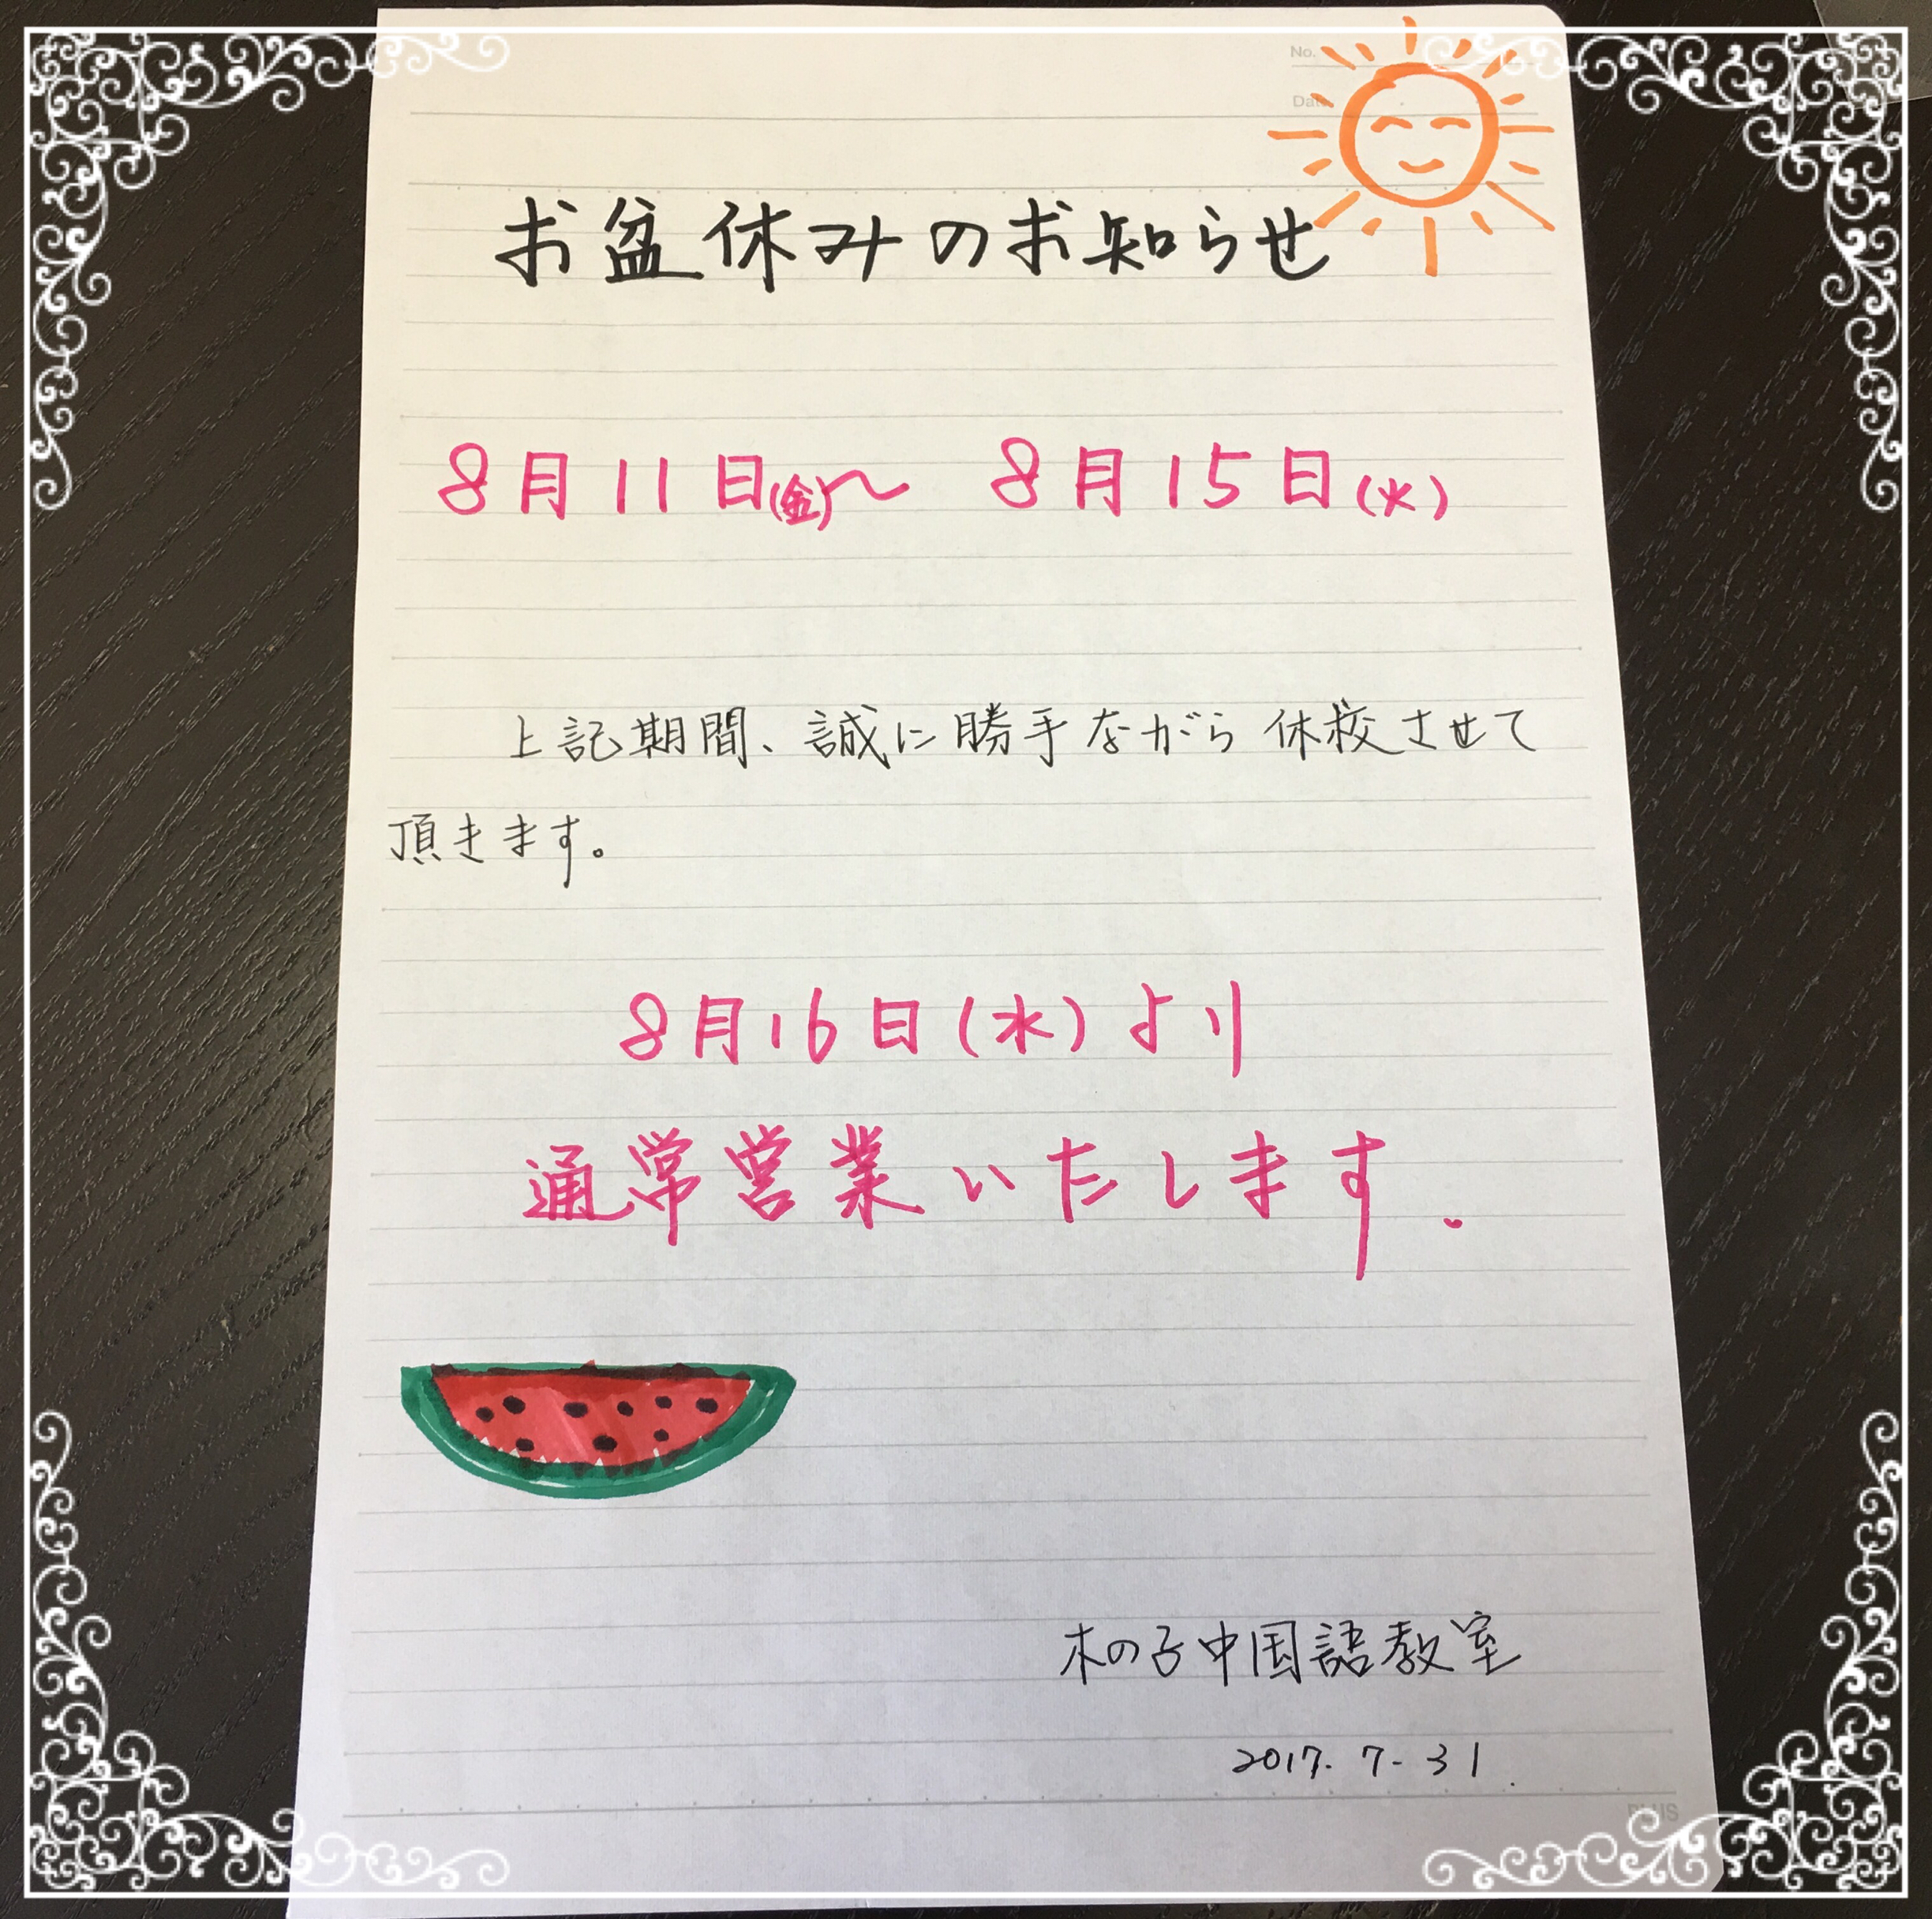 No.
Date
お盆休みのお知らせ
8月11日(金)〜 8月15日(火)
上記期間、誠に勝手ながら休校させて
頂きます。
8月16日(水)より
通常営業いたします.
木の子中国語教室
2017.7-31.
PLUS